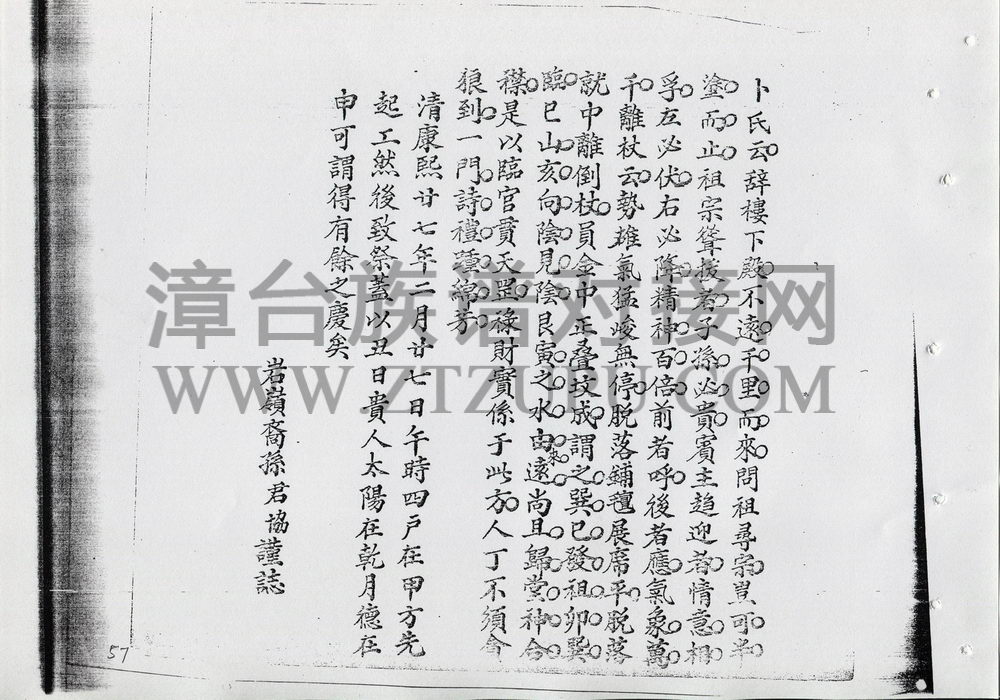 卜氏云辞樓下殿不遠千里而來問祖尋宗豈可半
塗而止祖宗聳拔者子孫必貴賓主趋迎者情意相
孚左必伏右必降精神百倍前者呼後者應氣象萬
千離杖云勢雄氣猛峻無停脫落鋪氊展席平脫落
就中離倒杖員金中正叠坟成謂之巽巳發祖卯巽
臨巳山亥向陰見陰艮寅之水由遠來尚且歸堂神合
襟是以臨官貫天罡祿財實係于此方人丁不須會
狼到一門詩禮踵綿芳
清康熙廿七年二月廿七日午時四戶在甲方先
起工然後致祭蓋以丑日貴人太陽在乾月德在
申可謂得有餘之慶矣
岩嶺裔孫君協謹誌
57
漳台族谱对接网
WWW.ZTZUPU.COM